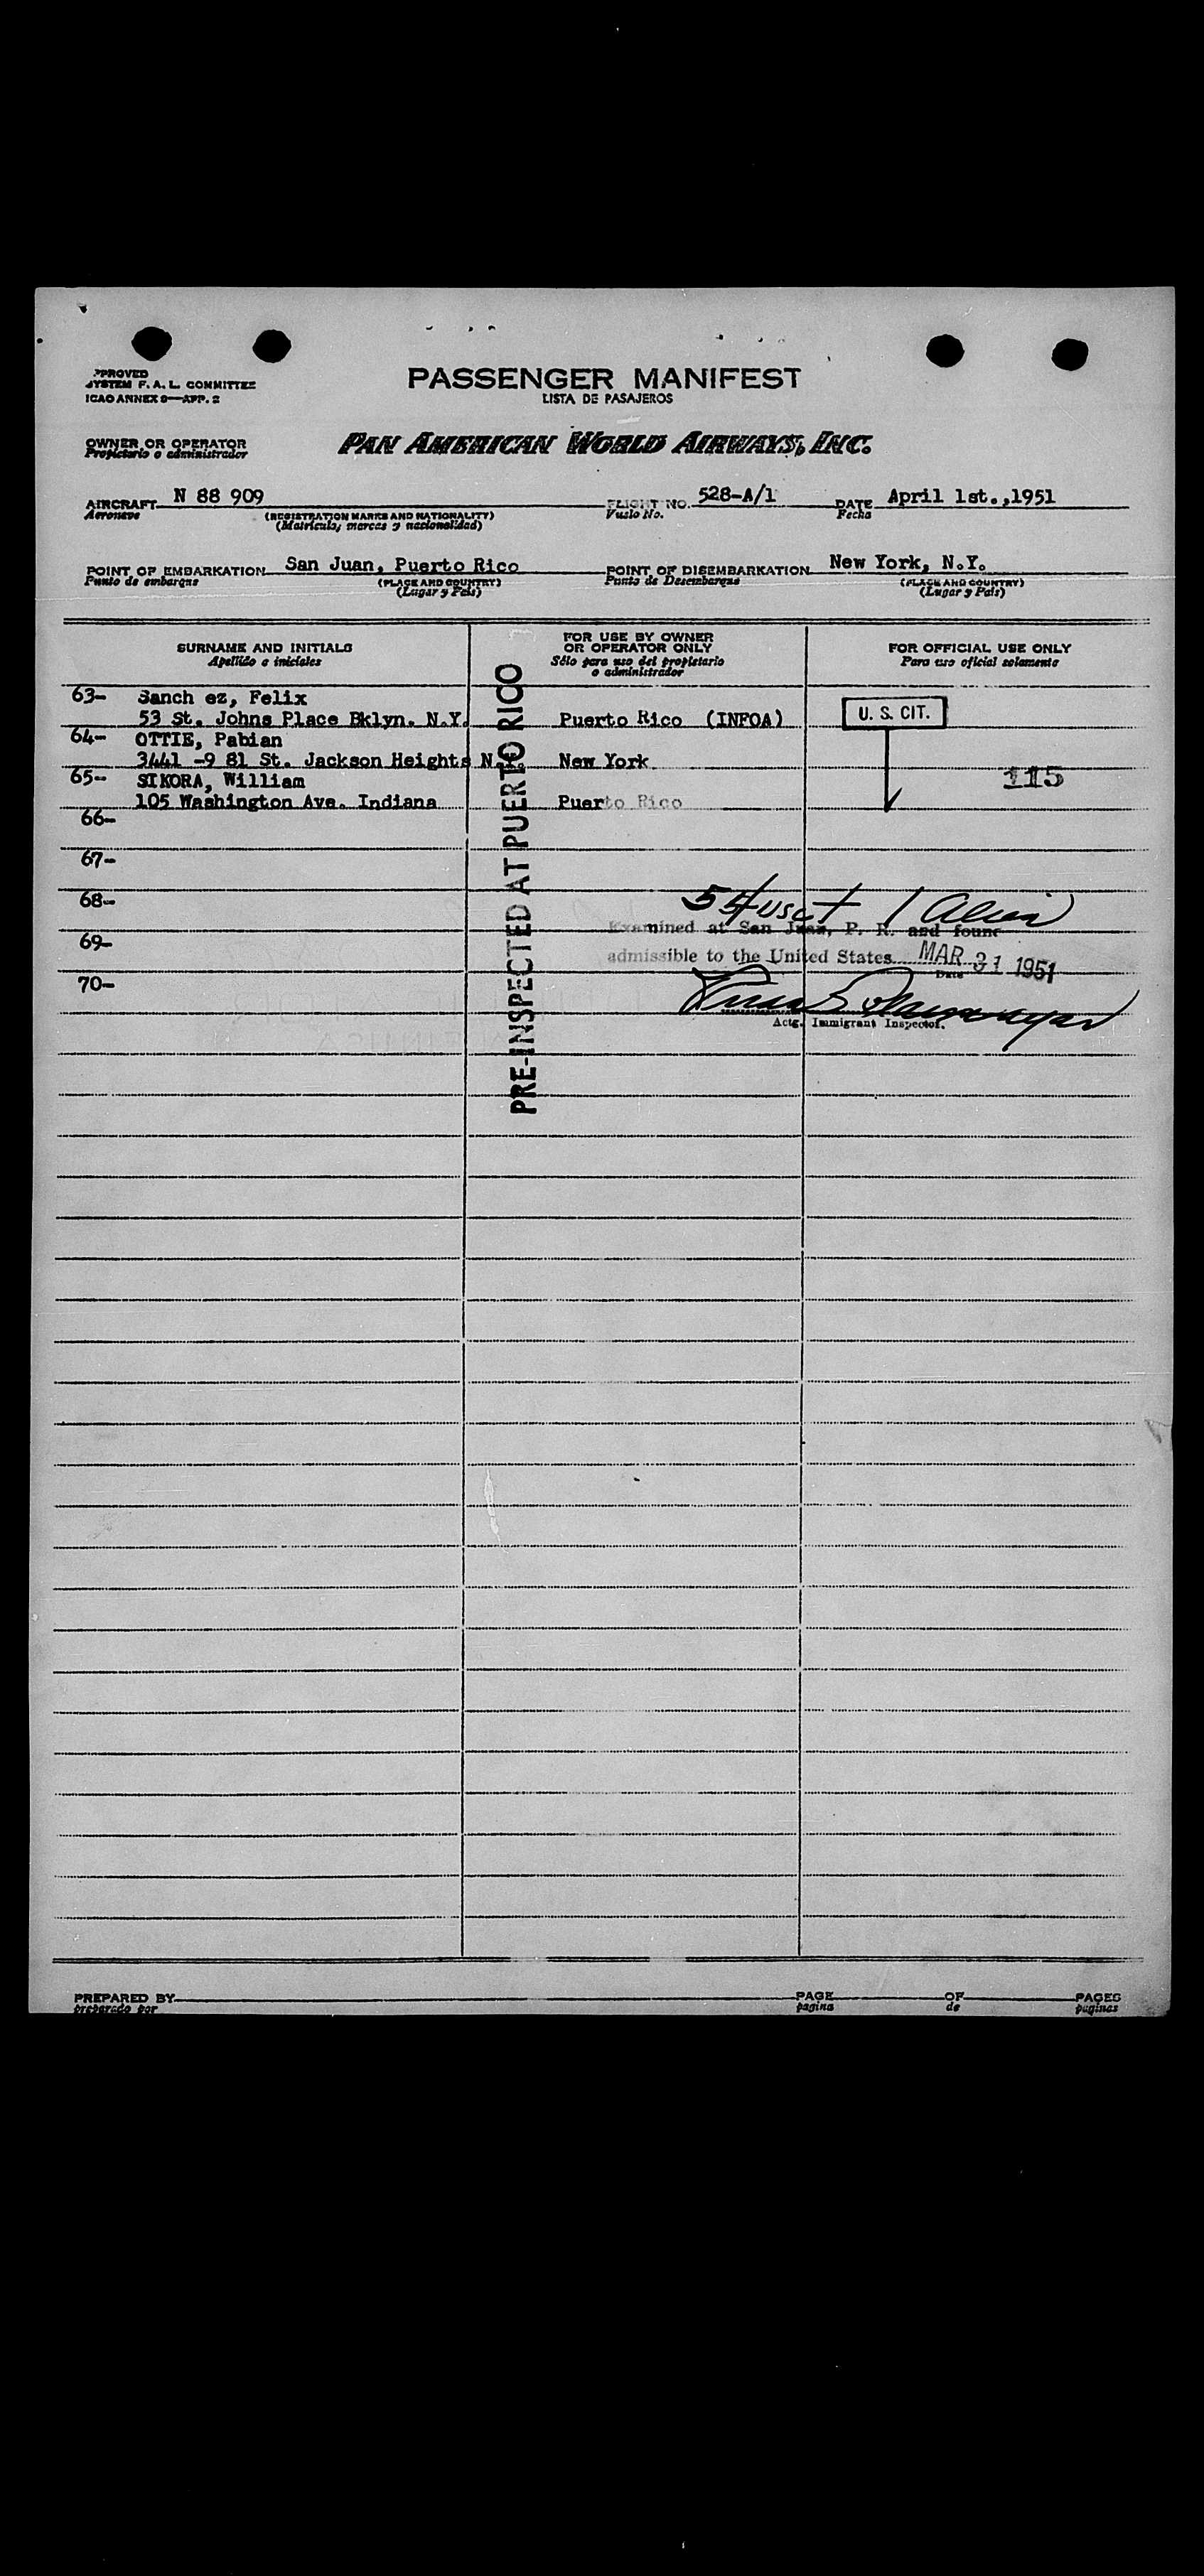 PASSENGER MANIFEST
LISTA DE PASAJEROS
PPROVED
SYSTEM F. A. L. COMMITTEE
ICAO ANNEX 9—APP. 2
OWNER OR OPERATOR
Propietario o administrador
PAN AMERICAN WORLD AIRWAYS, INC.
AIRCRAFT N 88 909 FLIGHT NO. 528-A/1 DATE April 1st.,1951
Aeronave (REGISTRATION MARKS AND NATIONALITY) Vuelo No. Fecha
(Matrícula, marcas y nacionalidad)
POINT OF EMBARKATION San Juan, Puerto Rico POINT OF DISEMBARKATION New York, N.Y.
Punto de embarque (PLACE AND COUNTRY) Punto de Desembarque (PLACE AND COUNTRY)
(Lugar y País) (Lugar y País)
SURNAME AND INITIALS
Apellido e iniciales
FOR USE BY OWNER
OR OPERATOR ONLY
Sólo para uso del propietario
o administrador
FOR OFFICIAL USE ONLY
Para uso oficial solamente
63- Sanch ez, Felix
53 St. Johns Place Bklyn. N.Y. Puerto Rico (INFOA) U. S. CIT.
64- OTTIE, Pabian
3441 -9 81 St. Jackson Heights N.Y. New York
65- SIKORA, William 115
105 Washington Ave. Indiana Puerto Rico
66-
67-
68-
69-
70-
PRE-INSPECTED AT PUERTO RICO
1 Alien
Examined at San Juan, P. R. and found
admissible to the United States MAR 31 1951
Date
Actg. Immigrant Inspector.
PREPARED BY PAGE OF PAGES
preparado por pagina de paginas